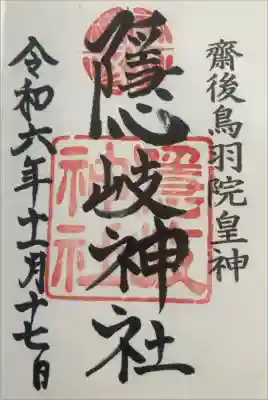 齋後鳥羽院皇神
隠岐神社
隠岐
神社
令和六年十一月十七日